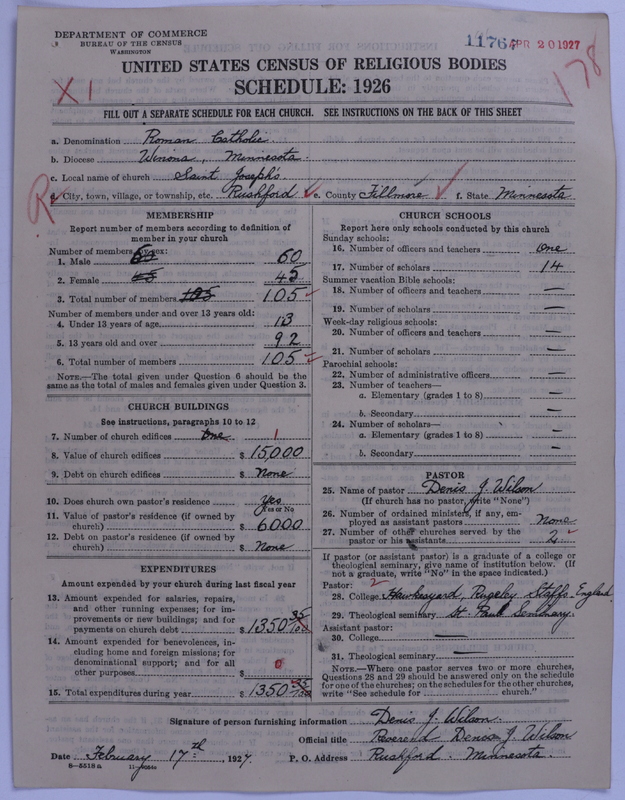 DEPARTMENT OF COMMERCE
BUREAU OF THE CENSUS
WASHINGTON
11764 APR 20 1927
178
X 1
UNITED STATES CENSUS OF RELIGIOUS BODIES
SCHEDULE: 1926
FILL OUT A SEPARATE SCHEDULE FOR EACH CHURCH. SEE INSTRUCTIONS ON THE BACK OF THIS SHEET
a. Denomination Roman Catholic
b. Diocese Winona, Minnesota
c. Local name of church Saint Joseph's
R
d. City, town, village, or township, etc. Rushford e. County Fillmore f. State Minnesota
MEMBERSHIP
Report number of members according to definition of
member in your church
Number of members by sex:
1. Male 60 60
2. Female 45 45
3. Total number of members 105 105
Number of members under and over 13 years old:
4. Under 13 years of age 13
5. 13 years old and over 92
6. Total number of members 105
NOTE.—The total given under Question 6 should be the
same as the total of males and females given under Question 3.
CHURCH BUILDINGS
See instructions, paragraphs 10 to 12
7. Number of church edifices one 1
8. Value of church edifices $ 15,000
9. Debt on church edifices $ None
10. Does church own pastor's residence Yes
(Yes or No)
11. Value of pastor's residence (if owned by
church) $ 6000
12. Debt on pastor's residence (if owned by
church) $ None
EXPENDITURES
Amount expended by your church during last fiscal year
13. Amount expended for salaries, repairs,
and other running expenses; for im-
provements or new buildings; and for
payments on church debt $ 1350 35/100
14. Amount expended for benevolences, in-
cluding home and foreign missions; for
denominational support; and for all
other purposes $ 0
15. Total expenditures during year $ 1350 35/100
CHURCH SCHOOLS
Report here only schools conducted by this church
Sunday schools:
16. Number of officers and teachers one
17. Number of scholars 14
Summer vacation Bible schools:
18. Number of officers and teachers —
19. Number of scholars —
Week-day religious schools:
20. Number of officers and teachers —
21. Number of scholars —
Parochial schools:
22. Number of administrative officers —
23. Number of teachers—
a. Elementary (grades 1 to 8) —
b. Secondary —
24. Number of scholars—
a. Elementary (grades 1 to 8) —
b. Secondary —
PASTOR
25. Name of pastor Denis J. Wilson
(If church has no pastor, write "None")
26. Number of ordained ministers, if any, em-
ployed as assistant pastors None
27. Number of other churches served by the
pastor or his assistants 2
If pastor (or assistant pastor) is a graduate of a college or
theological seminary, give name of institution below. (If
not a graduate, write "No" in the space indicated.)
Pastor: 2
28. College Hawkesyard, Rugeley Staffs England
29. Theological seminary St. Paul Seminary
Assistant pastor:
30. College —
31. Theological seminary —
NOTE.—Where one pastor serves two or more churches,
Questions 28 and 29 should be answered only on the schedule
for one of the churches; on the schedules for the other churches,
write "See schedule for church."
Signature of person furnishing information Denis J. Wilson
Official title Reverend Denis J. Wilson
Date February 17th, 1927. P. O. Address Rushford. Minnesota.
8—5518 a